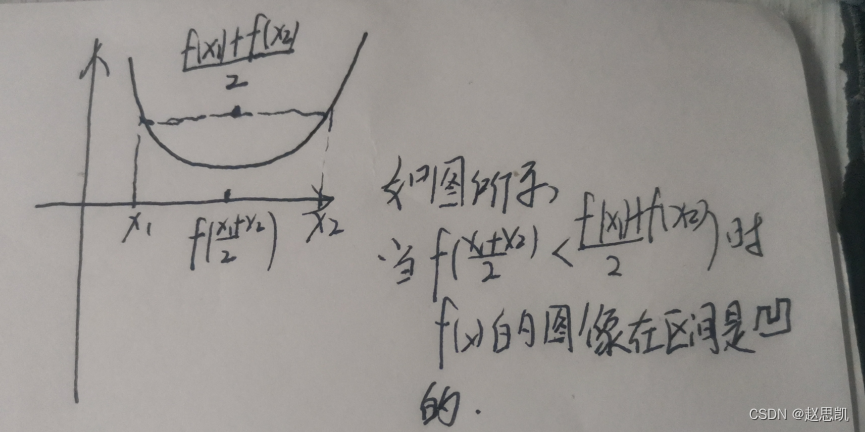 f(x₁)+f(x₂)
2
x₁
f(x₁+x₂/2)
x₂
如图所示,
当 f(x₁+x₂/2) < f(x₁)+f(x₂)/2 时
f(x)的图像在区间是凹
的.
CSDN @赵思凯